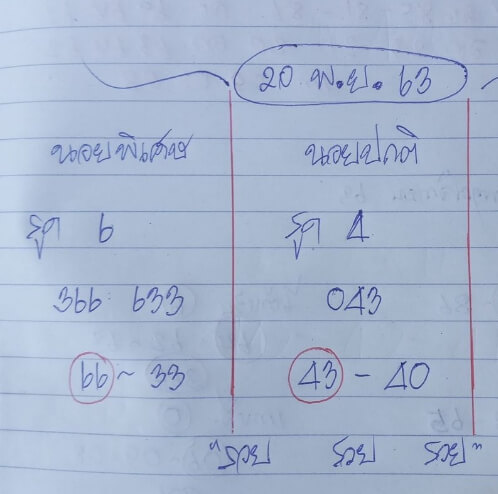 20 พ.ย. 63
ฮานอยพิเศษ ฮานอยปกติ
รูด 6 รูด 4
366 633 043
66 ~ 33 43 - 40